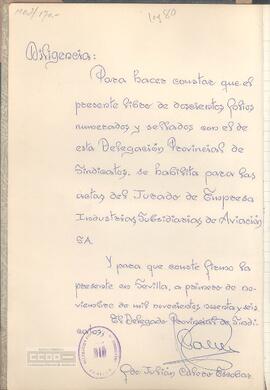 Diligencia:
Para hacer constar que el
presente libro de doscientos folios
numerados y sellados con el de
esta Delegación Provincial de
Sindicatos, se habilita para las
actas del Jurado de Empresa
Industrias Subsidiarias de Aviación
SA.
Y para que conste firmo la
presente en Sevilla, a primero de no-
viembre de mil novecientos cuenta y seis.
El Delegado Provincial de Sindi-
catos,
Fdo Julián
CCOO